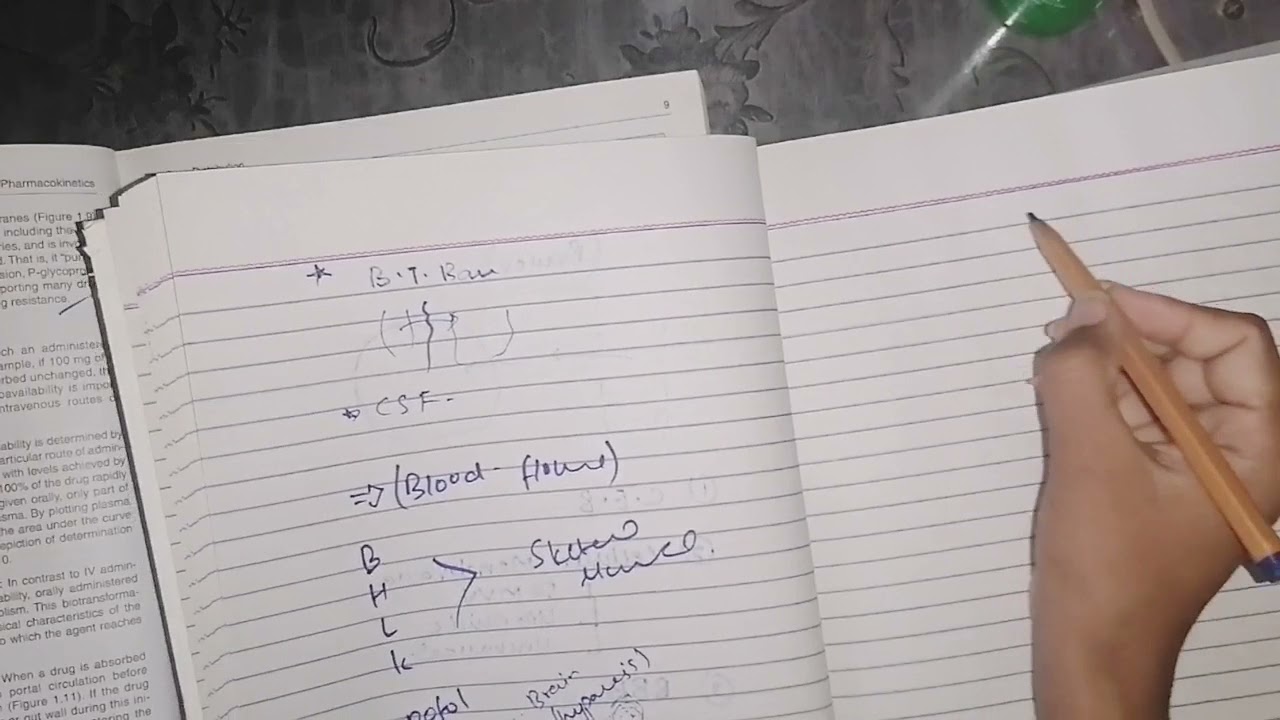 9
Distribution
Pharmacokinetics
ranes (Figure 1.9
including the
ries, and is inv
d. That is, it "pum
sion, P-glycopro
porting many dr
g resistance.
ch an administe
ample, if 100 mg of
rbed unchanged, th
oavailability is impo
ntravenous routes o
ability is determined by
articular route of admin-
with levels achieved by
100% of the drug rapidly
given orally, only part of
sma. By plotting plasma
he area under the curve
epiction of determination
0.
: In contrast to IV admin-
ability, orally administered
olism. This biotransforma-
ical characteristics of the
o which the agent reaches
When a drug is absorbed
portal circulation before
(Figure 1.11). If the drug
or gut wall during this ini-
* B.T. Barr
* CSF-
⇒ (Blood-flow)
B
H > Skeletal
L
K
Brain